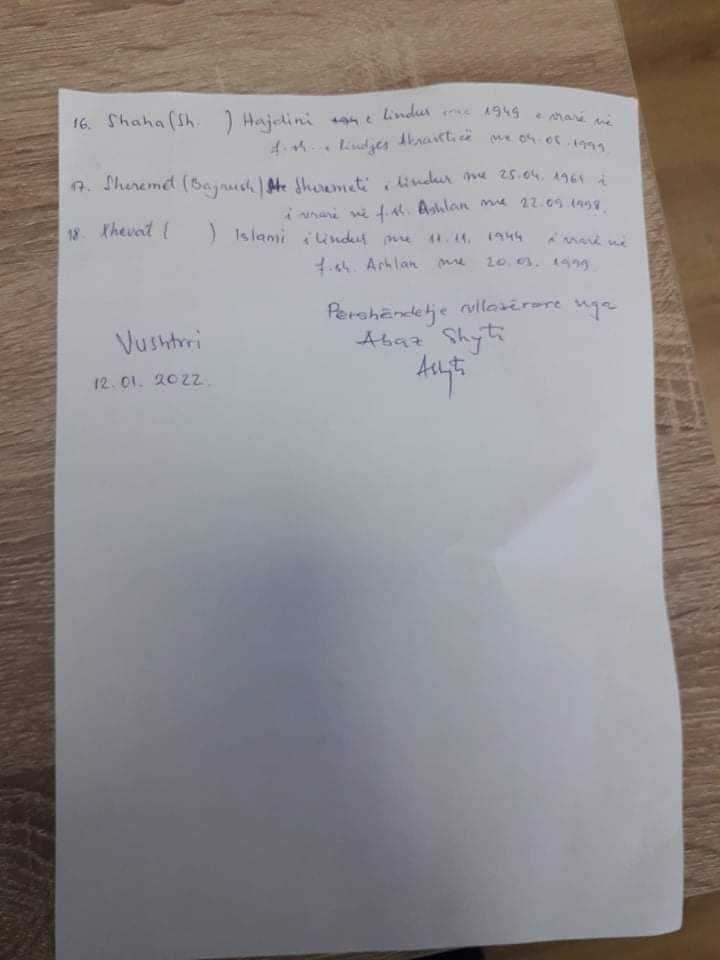 16. Shaha (Sh. ) Hajdini e lindur me 1949 e vrarë në
f.sh. e lindjes Skraviticë me 04.05.1999
17. Sheremet (Bajrush) Sheremeti i lindur me 25.04.1961 i
i vrarë në f.sh. Ashlan me 22.09.1998.
18. Xhevat ( ) Islami i lindur me 11.11.1944 i vrarë në
f.sh. Ashlan me 20.03.1999.
Përshëndetje vllazërore nga
Vushtrri Abaz Shyti
12.01.2022. AShyti